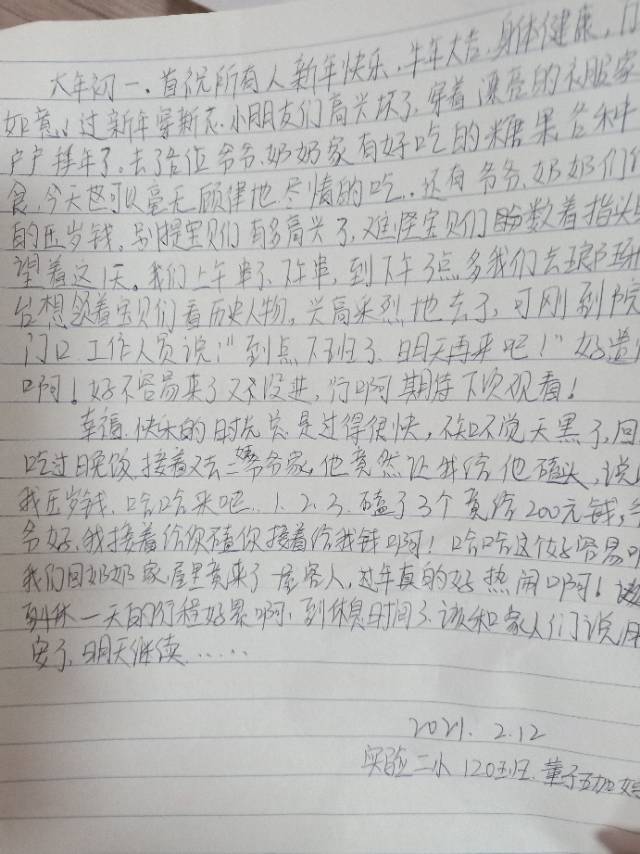 大年初一、首祝所有人新年快乐、牛年大吉、身体健康,
如意,过新年穿新衣、小朋友们高兴坏了,穿着漂亮的衣服家
户户拜年了。去了各位爷爷、奶奶家有好吃的糖果各种
食,今天总可以毫无顾律地尽情的吃,还有爷爷、奶奶们
的压岁钱,别提宝贝们有多高兴了,难怪宝贝们盼数着指头
望着这1天。我们上午串了下午串,到下午3点多我们去琅琊
台想领着宝贝们看历史人物,兴高采烈地去了,可刚到院
门口工作人员说:"到点下班了、明天再来吧!"好遗
啊!好不容易来了又不没进,行啊期待下次观看!
幸福、快乐的时光总是过得很快,不知不觉天黑了,回
吃过晚饭接着又去二爷爷家,他竟然让我给他磕头,说
我压岁钱,哈哈来吧,1、2、3、磕了3个竟给200元钱,
爷好,我接着给你磕你接着给我钱啊!哈哈这个好容易
我们回奶奶家屋里竟来了一屋客人,过年真的好热闹啊!
一天的行程好累啊,到休息时间了,该和家人们说
安了,明天继续......
2021.2.12
实验二小120班班、董子